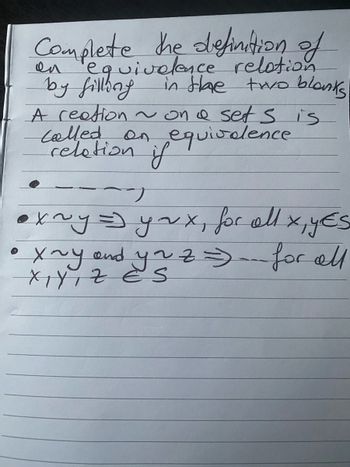 Complete the definition of
an equivalence relation
by filling in the two blanks
A reation ~ on a set S is
called an equivalence
relation if
• ----,
• x~y ⇒ y~x, for all x,y∈S
• x~y and y~z ⇒ --- for all
x,y,z ∈ S